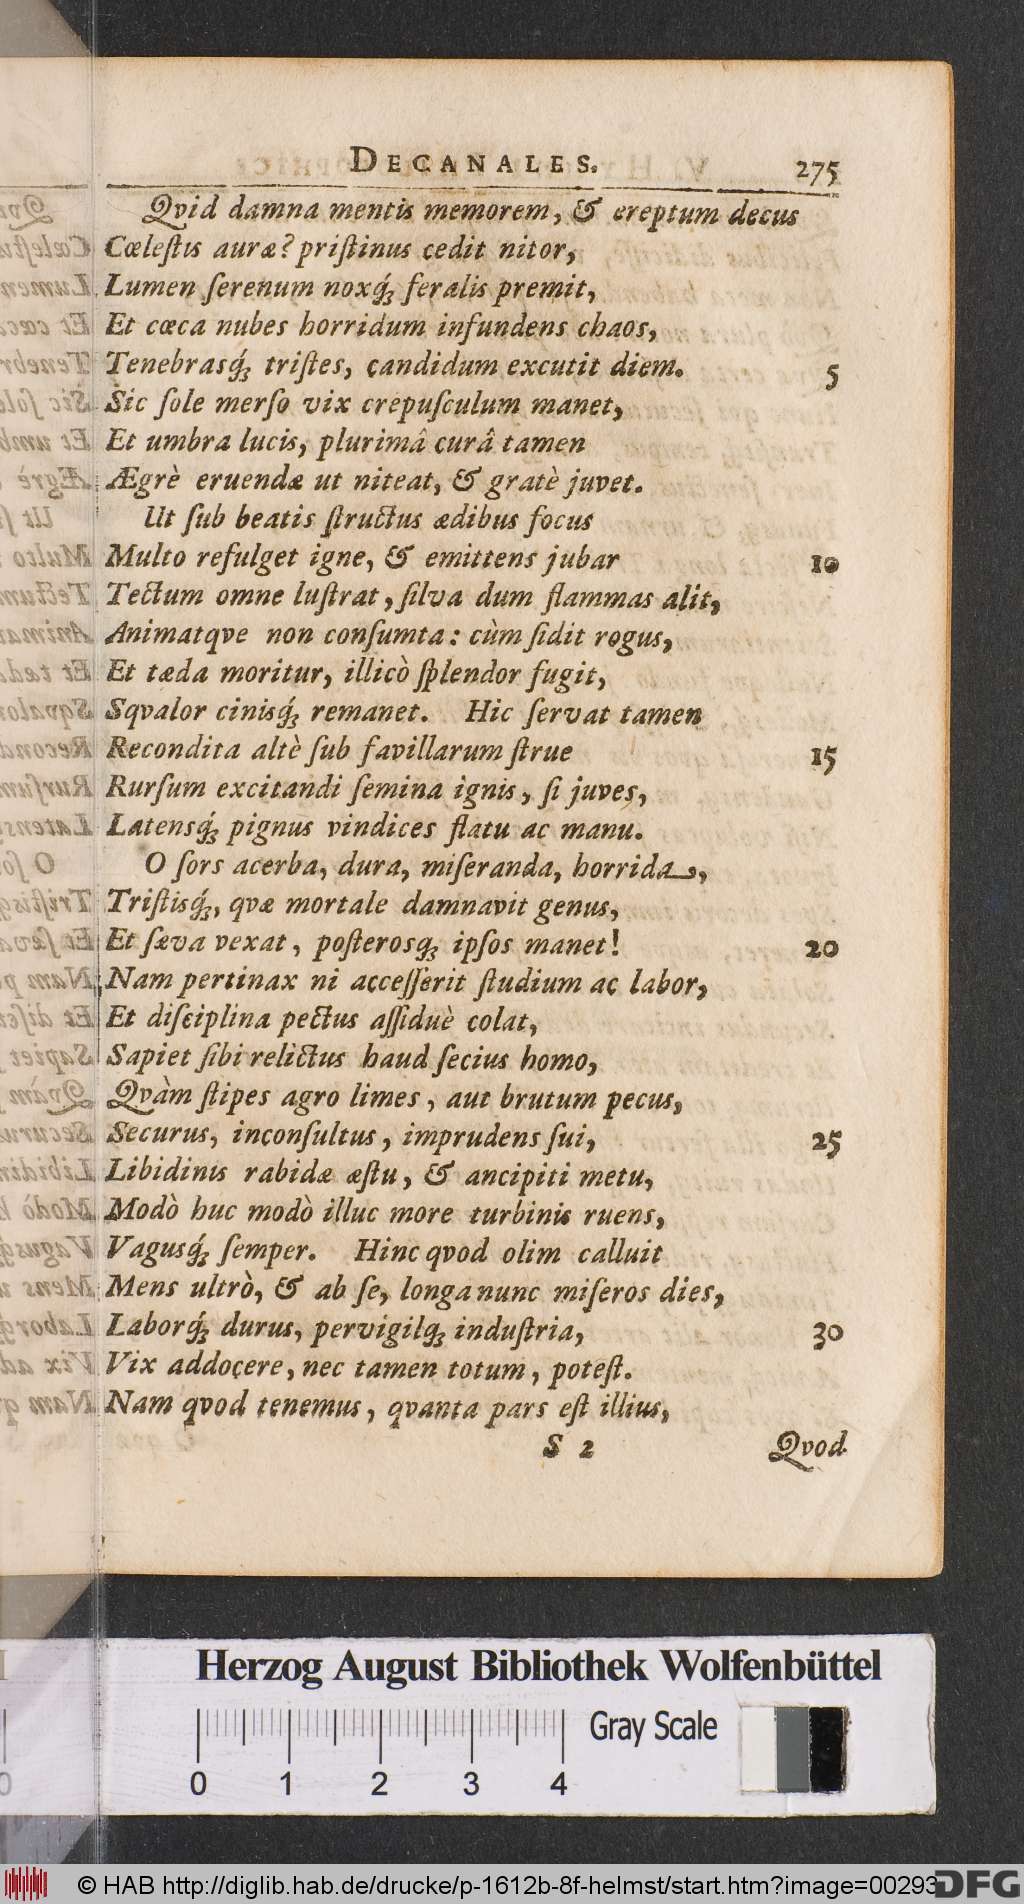 DECANALES. 275
Qvid damna mentis memorem, & ereptum decus
Cœleſtis auræ? priſtinus cedit nitor,
Lumen ſerenum noxq́; feralis premit,
Et cœca nubes horridum infundens chaos,
Tenebrasq́; triſtes, candidum excutit diem. 5
Sic ſole merſo vix crepuſculum manet,
Et umbra lucis, plurimâ curâ tamen
Ægrè eruendæ ut niteat, & gratè juvet.
Ut ſub beatis ſtructus ædibus focus
Multo refulget igne, & emittens jubar 10
Tectum omne luſtrat, ſilva dum flammas alit,
Animatqve non conſumta: cùm ſidit rogus,
Et tæda moritur, illicò ſplendor fugit,
Sqvalor cinisq́; remanet. Hic ſervat tamen
Recondita altè ſub favillarum ſtrue 15
Rurſum excitandi ſemina ignis, ſi juves,
Latensq́; pignus vindices flatu ac manu.
O ſors acerba, dura, miſeranda, horrida,
Triſtisq́;, qvæ mortale damnavit genus,
Et ſæva vexat, poſterosq; ipſos manet! 20
Nam pertinax ni acceſſerit ſtudium ac labor,
Et diſciplina pectus aſſiduè colat,
Sapiet ſibi relictus haud ſecius homo,
Qvàm ſtipes agro limes, aut brutum pecus,
Securus, inconſultus, imprudens ſui, 25
Libidinis rabidæ æſtu, & ancipiti metu,
Modò huc modò illuc more turbinis ruens,
Vagusq́; ſemper. Hinc qvod olim calluit
Mens ultrò, & ab ſe, longa nunc miſeros dies,
Laborq́; durus, pervigilq; induſtria, 30
Vix addocere, nec tamen totum, poteſt.
Nam qvod tenemus, qvanta pars eſt illius,
S 2 Qvod
Herzog August Bibliothek Wolfenbüttel
0 1 2 3 4 Gray Scale
© HAB http://diglib.hab.de/drucke/p-1612b-8f-helmst/start.htm?image=00293
DFG